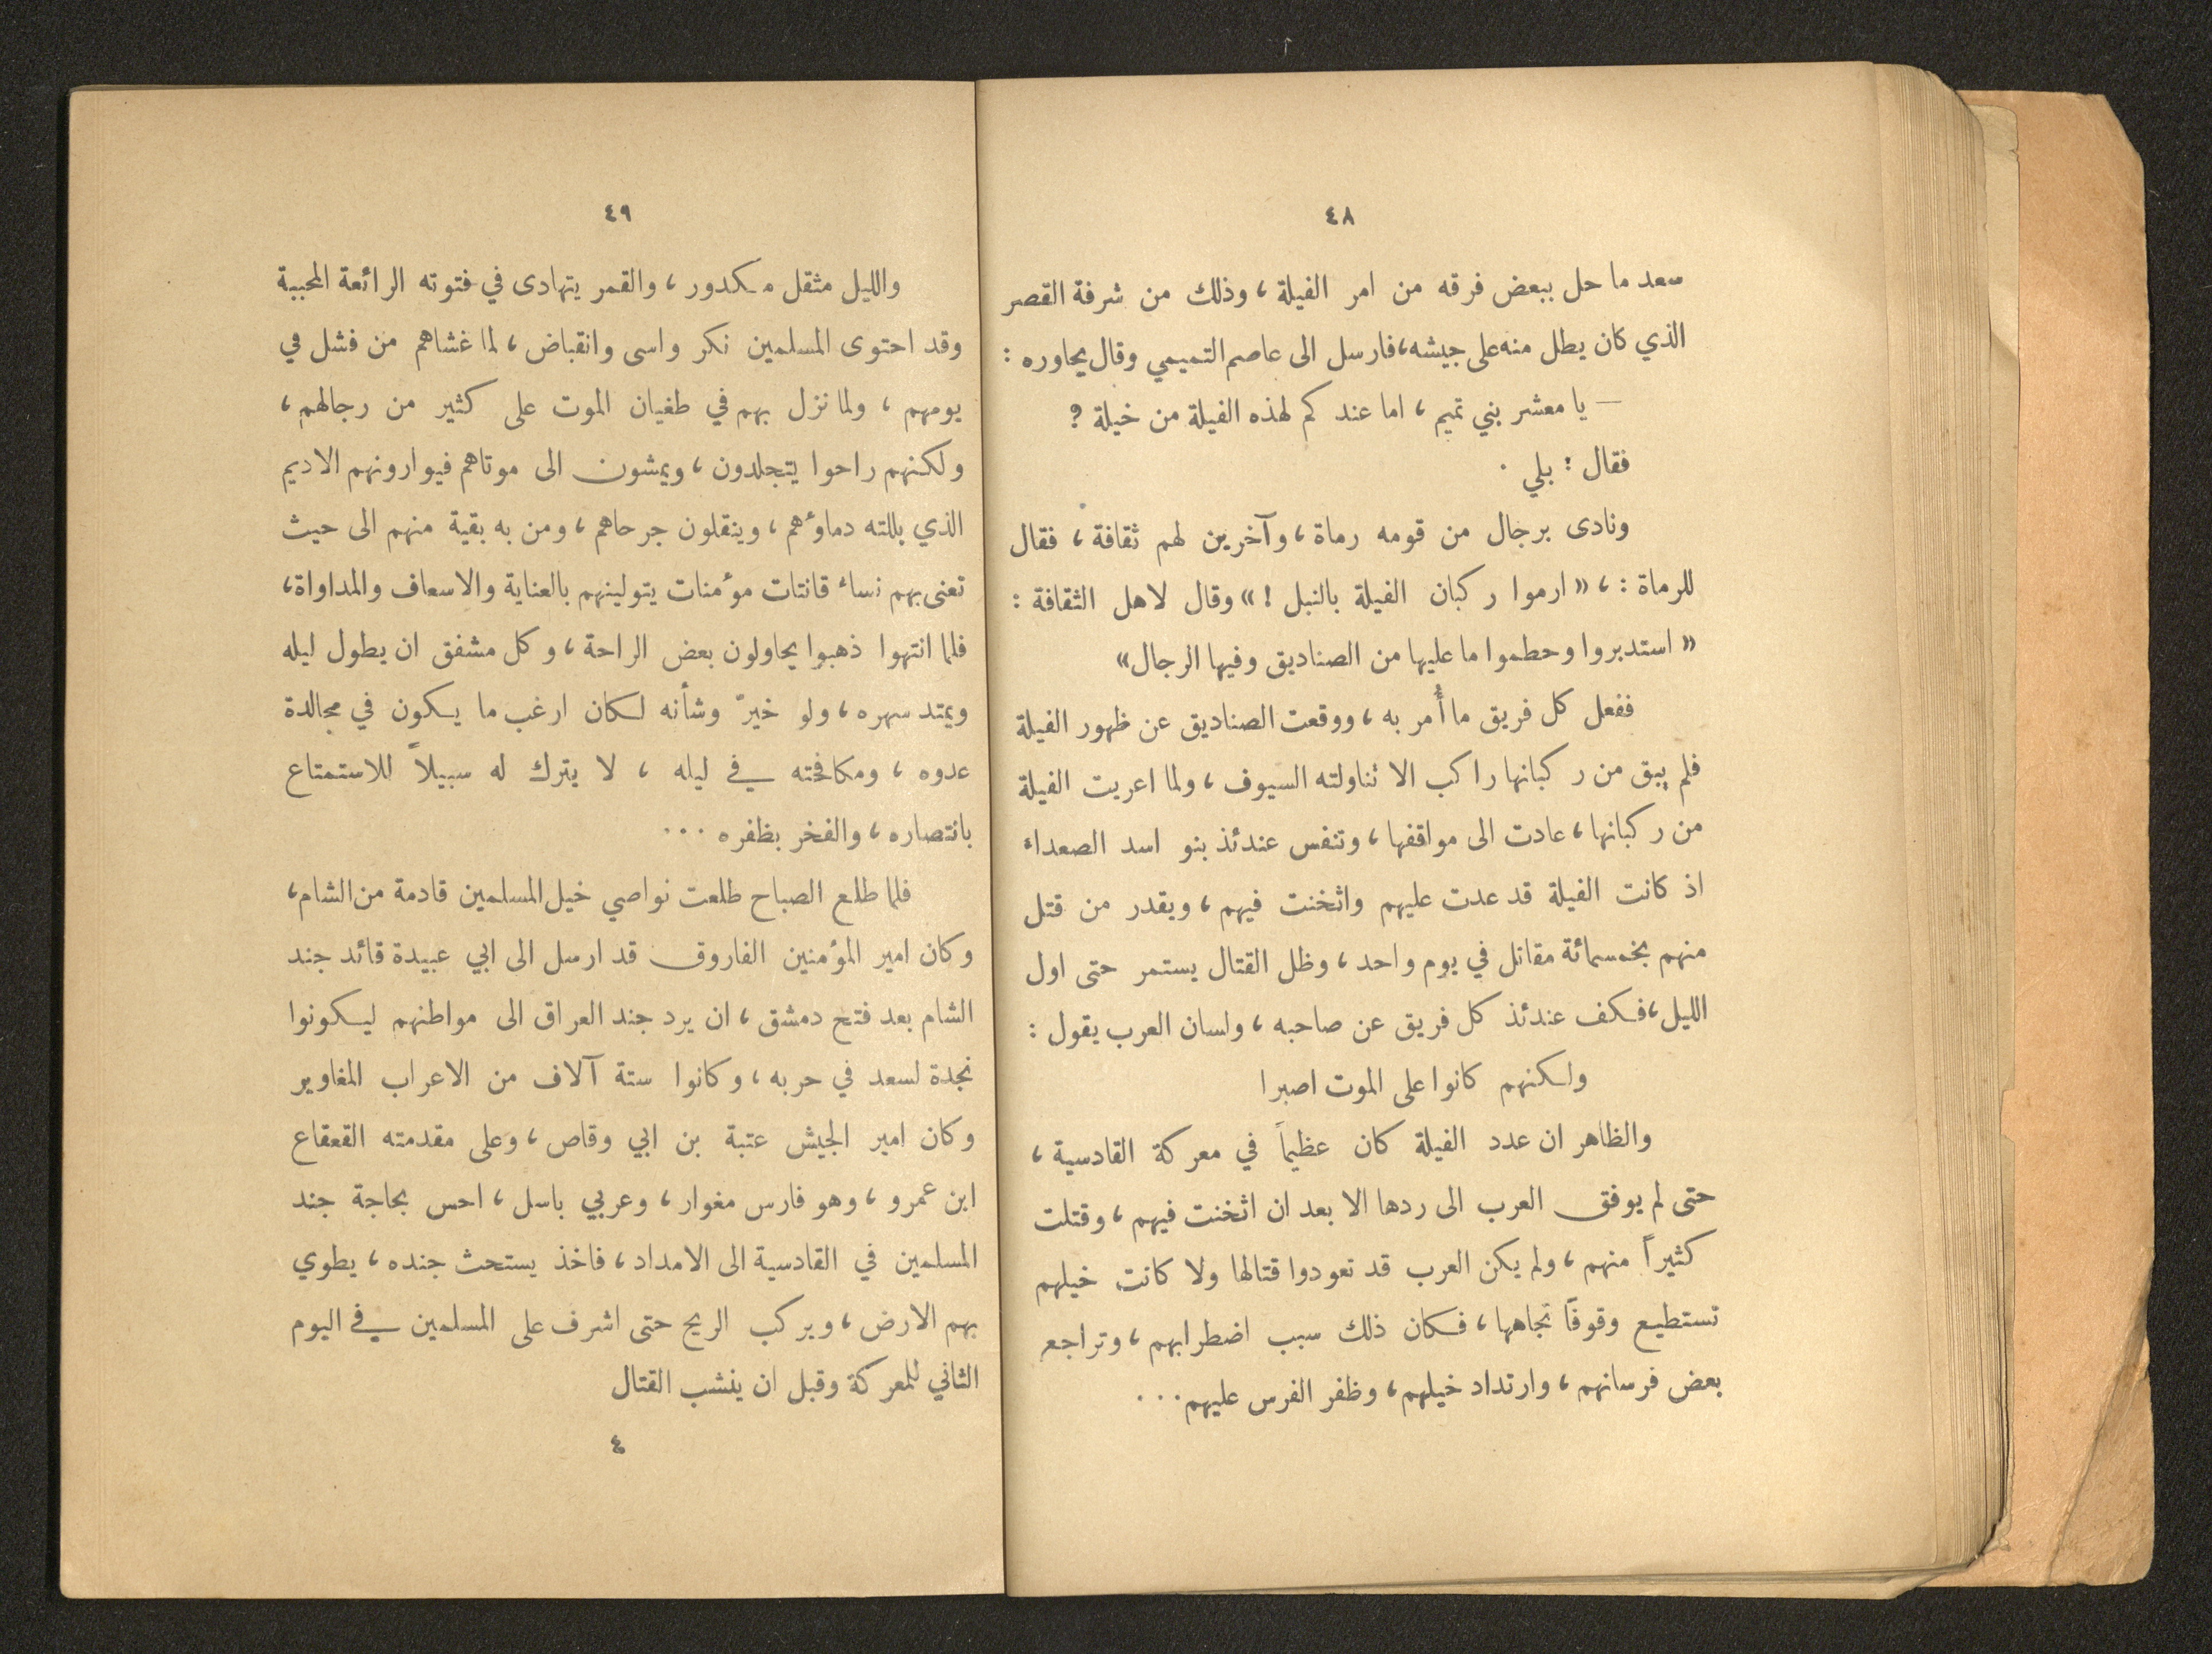 ٤٨
سعد ما حل ببعض فرقه من امر الفيلة ، وذلك من شرفة القصر
الذي كان يطل منه على جيشه ، فارسل الى عاصم التميمي وقال يحاوره :
— يا معشر بني تميم ، اما عند كم لهذه الفيلة من خيلة ؟
فقال : بلي .
ونادى برجال من قومه رماة ، وآخرين لهم ثقافة ، فقال
للرماة : ، « ارموا ركبان الفيلة بالنبل ! » وقال لاهل الثقافة :
« استدبروا وحطموا ما عليها من الصناديق وفيها الرجال »
ففعل كل فريق ما أُمر به ، ووقعت الصناديق عن ظهور الفيلة
فلم يبق من ركبانها راكب الا تناولته السيوف ، ولما اعريت الفيلة
من ركبانها ، عادت الى مواقفها ، وتنفس عندئذ بنو اسد الصعداء
اذ كانت الفيلة قد عدت عليهم واثخنت فيهم ، ويقدر من قتل
منهم بخمسمائة مقاتل في يوم واحد ، وظل القتال يستمر حتى اول
الليل ، فكف عندئذ كل فريق عن صاحبه ، ولسان العرب يقول :
ولكنهم كانوا على الموت اصبرا
والظاهر ان عدد الفيلة كان عظيماً في معركة القادسية ،
حتى لم يوفق العرب الى ردها الا بعد ان اثخنت فيهم ، وقتلت
كثيراً منهم ، ولم يكن العرب قد تعودوا قتالها ولا كانت خيلهم
تستطيع وقوفاً تجاهها ، فكان ذلك سبب اضطرابهم ، وتراجع
بعض فرسانهم ، وارتداد خيلهم ، وظفر الفرس عليهم ...
٤٩
والليل مثقل مكدور ، والقمر يتهادى في فتوته الرائعة المحببة
وقد احتوى المسلمين نكر واسى وانقباض ، لما غشاهم من فشل في
يومهم ، ولما نزل بهم في طغيان الموت على كثير من رجالهم ،
ولكنهم راحوا يتجلدون ، ويمشون الى موتاهم فيوارونهم الاديم
الذي بللته دماؤهم ، وينقلون جرحاهم ، ومن به بقية منهم الى حيث
تعنى بهم نساء قانتات مؤمنات يتولينهم بالعناية والاسعاف والمداواة ،
فلما انتهوا ذهبوا يحاولون بعض الراحة ، وكل مشفق ان يطول ليله
ويمتد سهره ، ولو خيرّ وشأنه لكان ارغب ما يكون في مجالدة
عدوه ، ومكافحته في ليله ، لا يترك له سبيلاً للاستمتاع
بانتصاره ، والفخر بظفره ...
فلما طلع الصباح طلعت نواصي خيل المسلمين قادمة من الشام ،
وكان امير المؤمنين الفاروق قد ارسل الى ابي عبيدة قائد جند
الشام بعد فتح دمشق ، ان يرد جند العراق الى مواطنهم ليكونوا
نجدة لسعد في حربه ، وكانوا ستة آلاف من الاعراب المغاوير
وكان امير الجيش عتبة بن ابي وقاص ، وعلى مقدمته القعقاع
ابن عمرو ، وهو فارس مغوار ، وعربي باسل ، احس بحاجة جند
المسلمين في القادسية الى الامداد ، فاخذ يستحث جنده ، يطوي
بهم الارض ، ويركب الريح حتى اشرف على المسلمين في اليوم
الثاني للمعركة وقبل ان ينشب القتال
٤